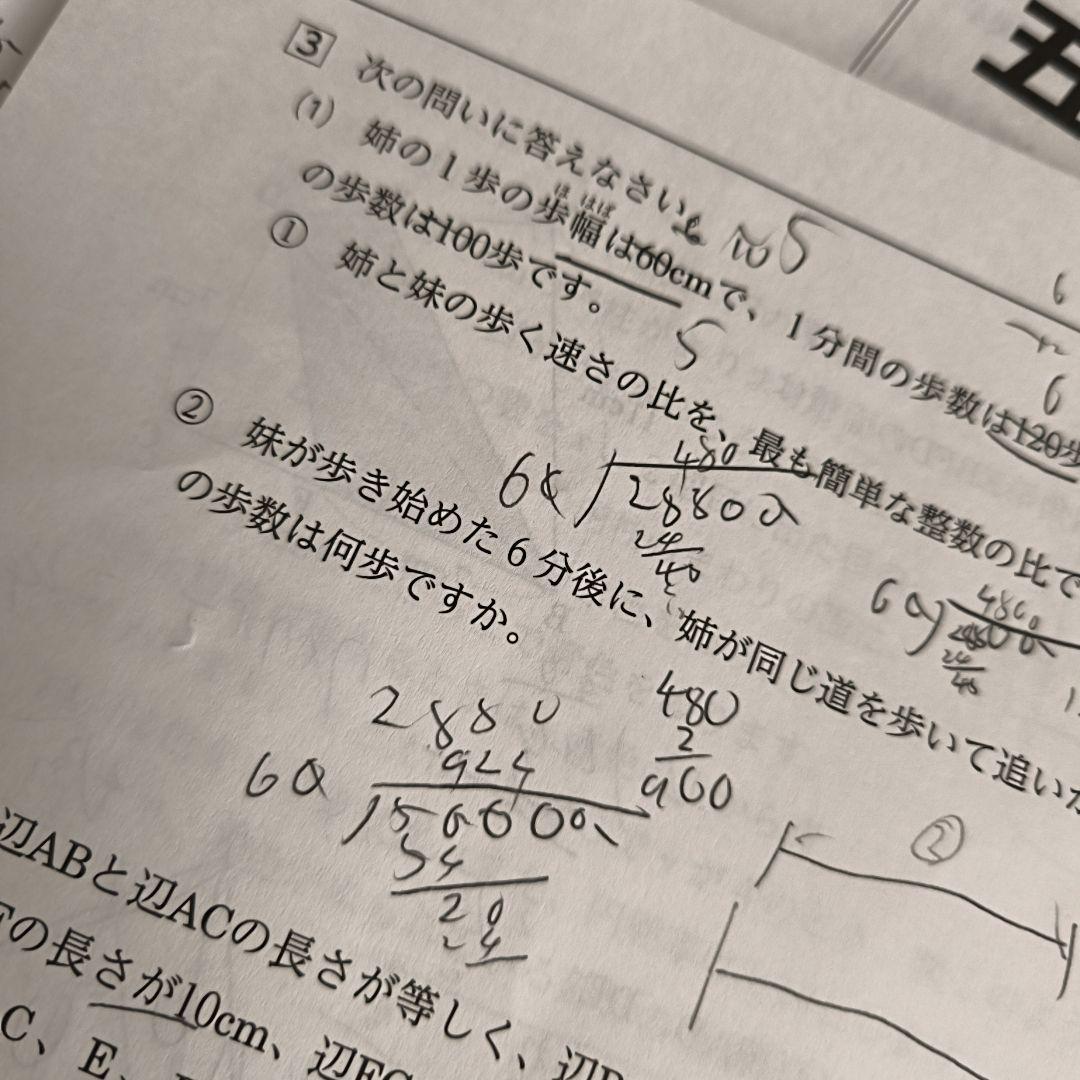 五
3 次の問いに答えなさい。
(1) 姉の1歩の歩幅は60cmで、1分間の歩数は120歩
ほ はば
の歩数は100歩です。
① 姉と妹の歩く速さの比を、最も簡単な整数の比で
② 妹が歩き始めた6分後に、姉が同じ道を歩いて追い
の歩数は何歩ですか。
5
5
6
6
480
28800
24
40
60
4800
24
48
2880
924
60
480
2
960
54
20
②
辺ABと辺ACの長さが等しく、辺
の長さが10cm、辺
C、E、